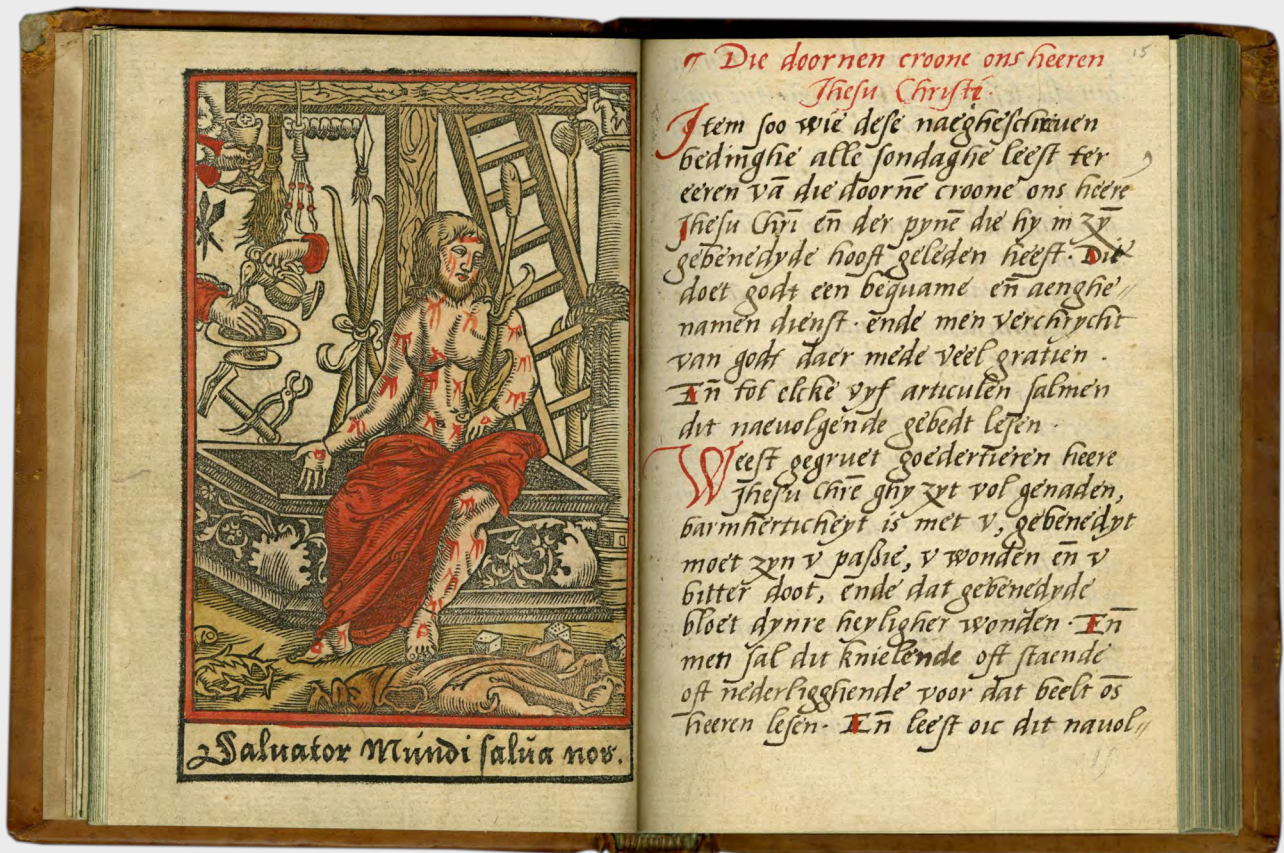 Saluator Mundi salua nos.
15
¶ Die doornen croone ons heeren
Jhesu Christi.
Item soo wie dese naegheschreuen
bedinghe alle sondaghe leest ter
eeren vā die doornē croone ons heere
Jhesu Chrī eñ der pynē die hy in zȳ
gebenedyde hooft geleden heeft. Die
doet godt een bequame eñ aenghe〃
namen dienst. ende men verchrycht
van godt daer mede veel gratien.
Eñ tot elcke vyf articulen salmen
dit naeuolgende gebedt lesen.
Weest gegruet goedertieren heere
Jhesu Chrē ghy zyt vol genaden,
barmherticheyt is met v, gebenedyt
moet zyn v passie, v wonden eñ v
bitter doot, ende dat gebenedyde
bloet dynre heyligher wonden. Eñ
men sal dit knielende oft staende
oft nederligghende voor dat beelt ōs
heeren lesen. Eñ leest oic dit nauol〃
15